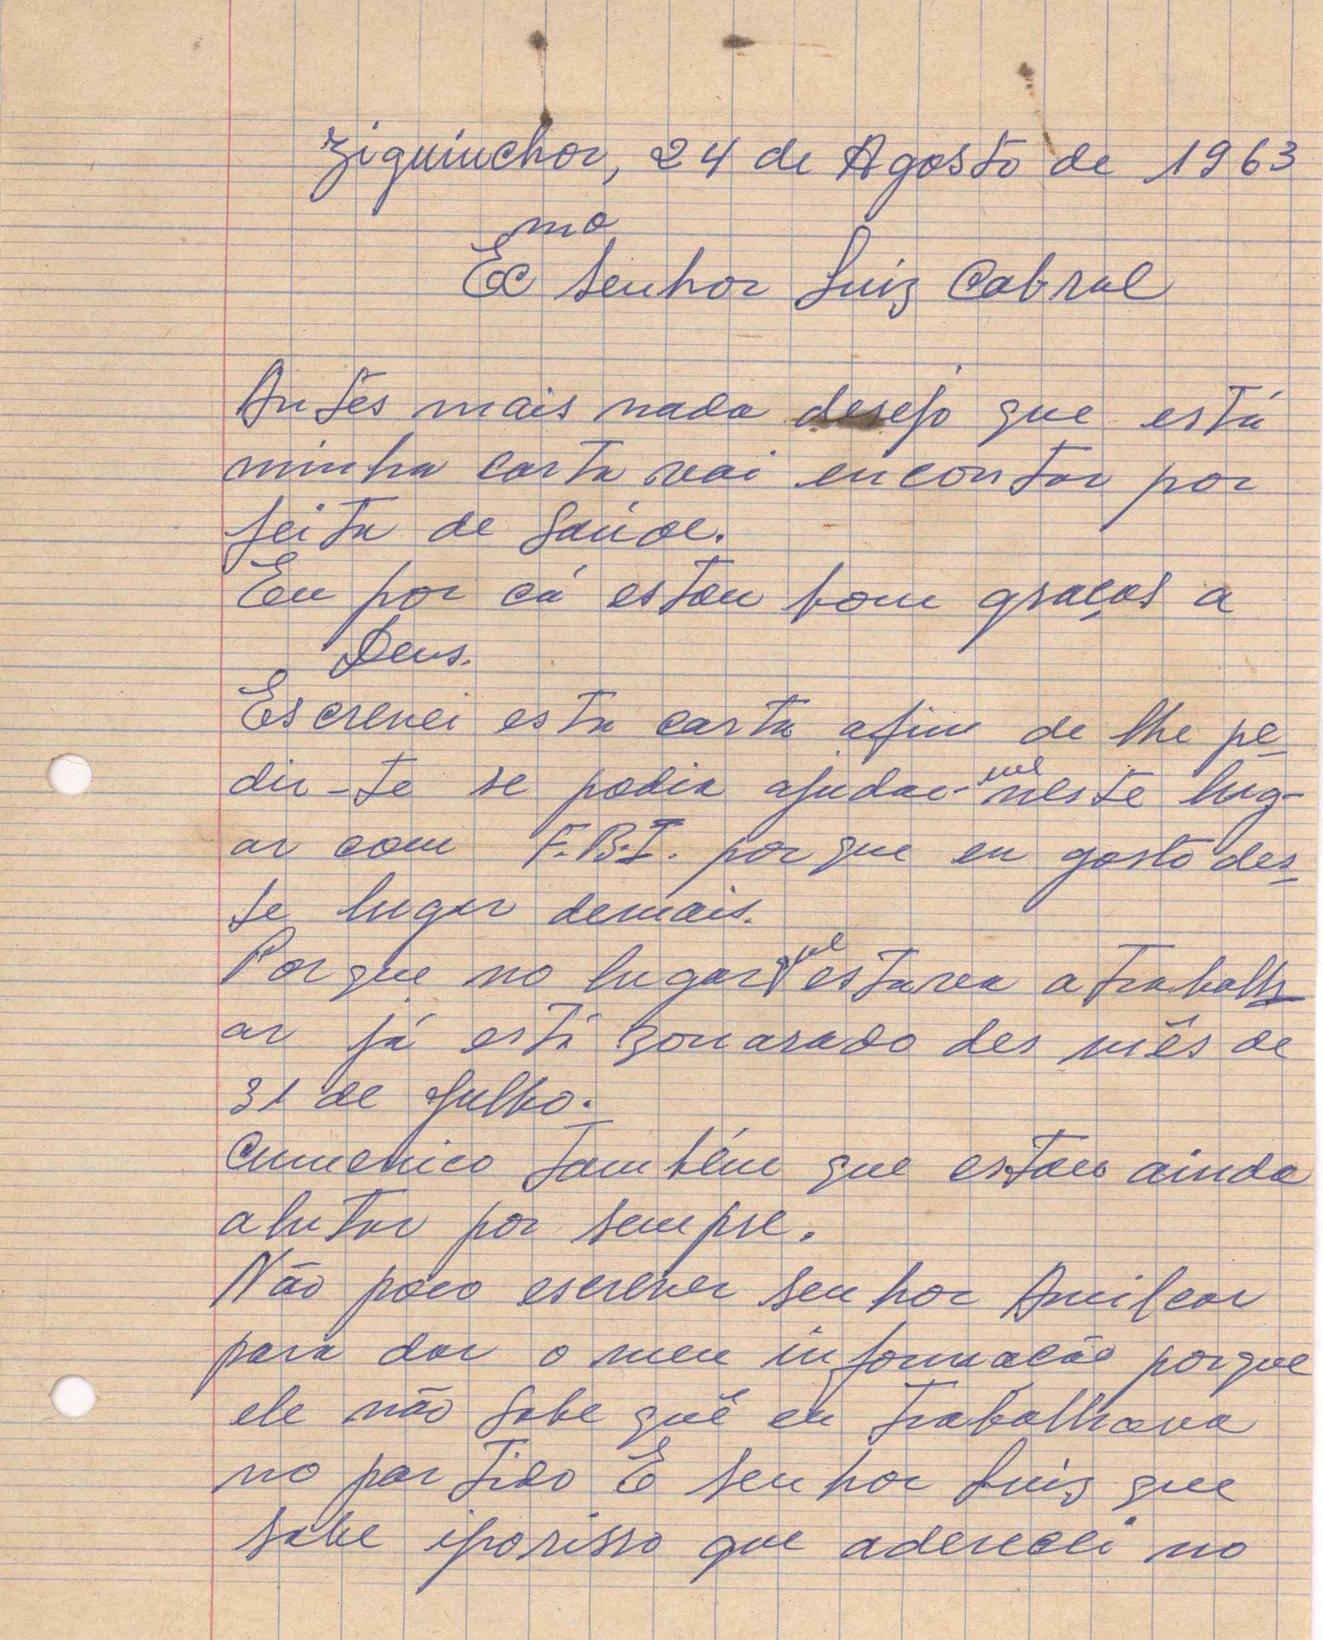 Ziguinchor, 24 de Agosto de 1963
Exmo Senhor Luiz Cabral
Antes mais nada desejo que está
minha carta vai encontar por
feita de Saúde.
Eu por cá estou bom graças a
Deus.
Escrevei esta carta afim de lhe pe-
dir-te se podia ajudar-me neste lug-
ar com F.B.I. porque eu gosto des-
te lugar demais.
Porque no lugar que estava a trabalh-
ar já está des mês de
31 de Julho.
também que estou ainda
alutar por sempre.
Não poco escrever senhor Amilcar
para dar o meu informacão porque
ele não sabe quê eu trabalhava
no partido E senhor Luiz que
sabe iporisso que no